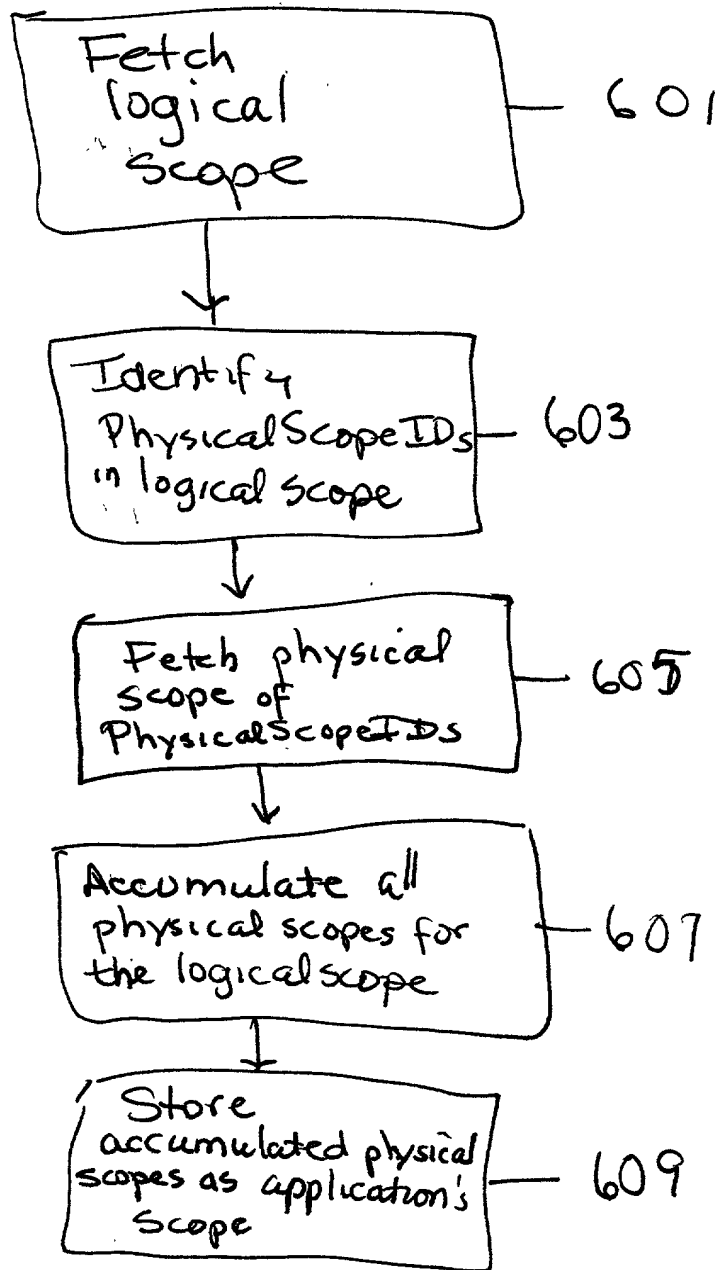 Fetch
logical
scope
601
Identify
PhysicalScopeIDs
in logical scope
603
Fetch physical
scope of
PhysicalScopeIDs
605
Accumulate all
physical scopes for
the logical scope
607
Store
accumulated physical
scopes as application's
scope
609